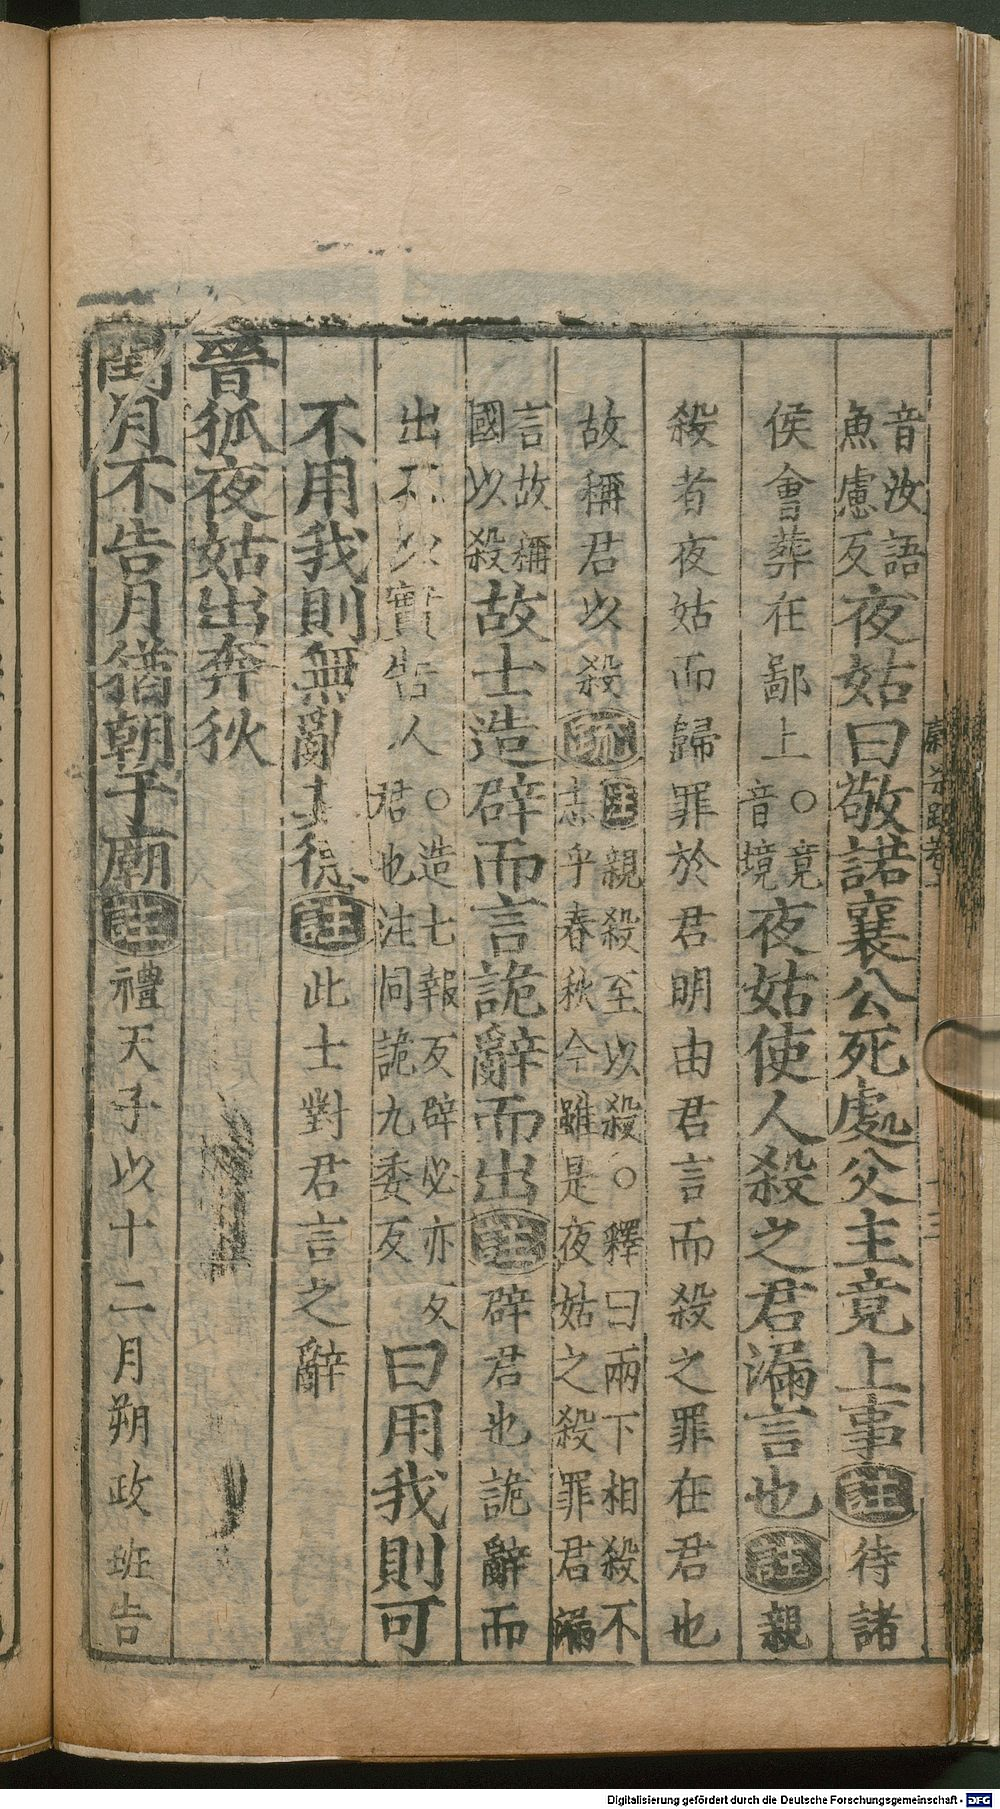 音汝語
魚慮反夜姑曰敬諾襄公死處父主竟上事註待諸
侯會葬在鄙上○竟
音境夜姑使人殺之君漏言也註親
殺者夜姑而歸罪於君明由君言而殺之罪在君也
故稱君以殺疏註親殺至以殺○釋曰兩下相殺不
志乎春秋今雖是夜姑之殺罪君漏
言故稱
國以殺故士造辟而言詭辭而出註辟君也詭辭而
出不以實告人○造七報反辟必亦反
君也注同詭九委反曰用我則可
不用我則無亂其德註此士對君言之辭
晉狐夜姑出奔狄
閏月不告月猶朝于廟註禮天子以十二月朔政班告
Digitalisierung gefördert durch die Deutsche Forschungsgemeinschaft - DFG